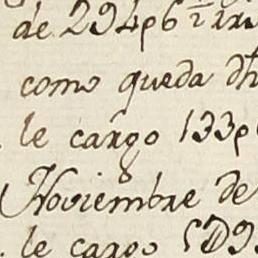 de 29406
como queda dh
le cargo 1330
Noviembre de
le cargo